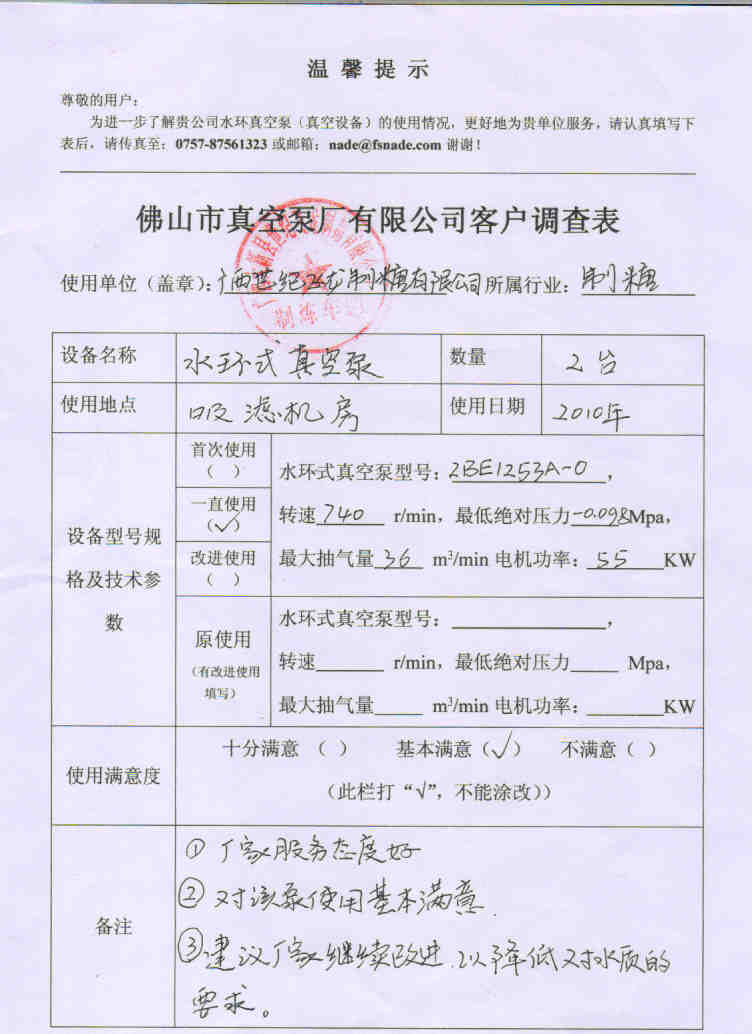 温馨提示
尊敬的用户：
为进一步了解贵公司水环真空泵（真空设备）的使用情况，更好地为贵单位服务，请认真填写下
表后，请传真至：0757-87561323 或邮箱：nade@fsnade.com 谢谢！
佛山市真空泵厂有限公司客户调查表
使用单位（盖章）：广西世纪飞龙制糖有限公司 所属行业：制糖
设备名称 水环式真空泵 数量 2台
使用地点 吸滤机房 使用日期 2010年
设备型号规格及技术参数
首次使用
（ ）
一直使用
（√）
改进使用
（ ）
水环式真空泵型号：2BE1253A-0，
转速 740 r/min，最低绝对压力-0.098Mpa，
最大抽气量 36 m³/min 电机功率：55 KW
原使用
（有改进使用
填写）
水环式真空泵型号：，
转速 r/min，最低绝对压力 Mpa，
最大抽气量 m³/min 电机功率： KW
使用满意度
十分满意（ ） 基本满意（√） 不满意（ ）
（此栏打“√”，不能涂改））
备注
① 厂家服务态度好
② 对该泵使用基本满意.
③ 建议厂家继续改进.以降低对水质的
要求。